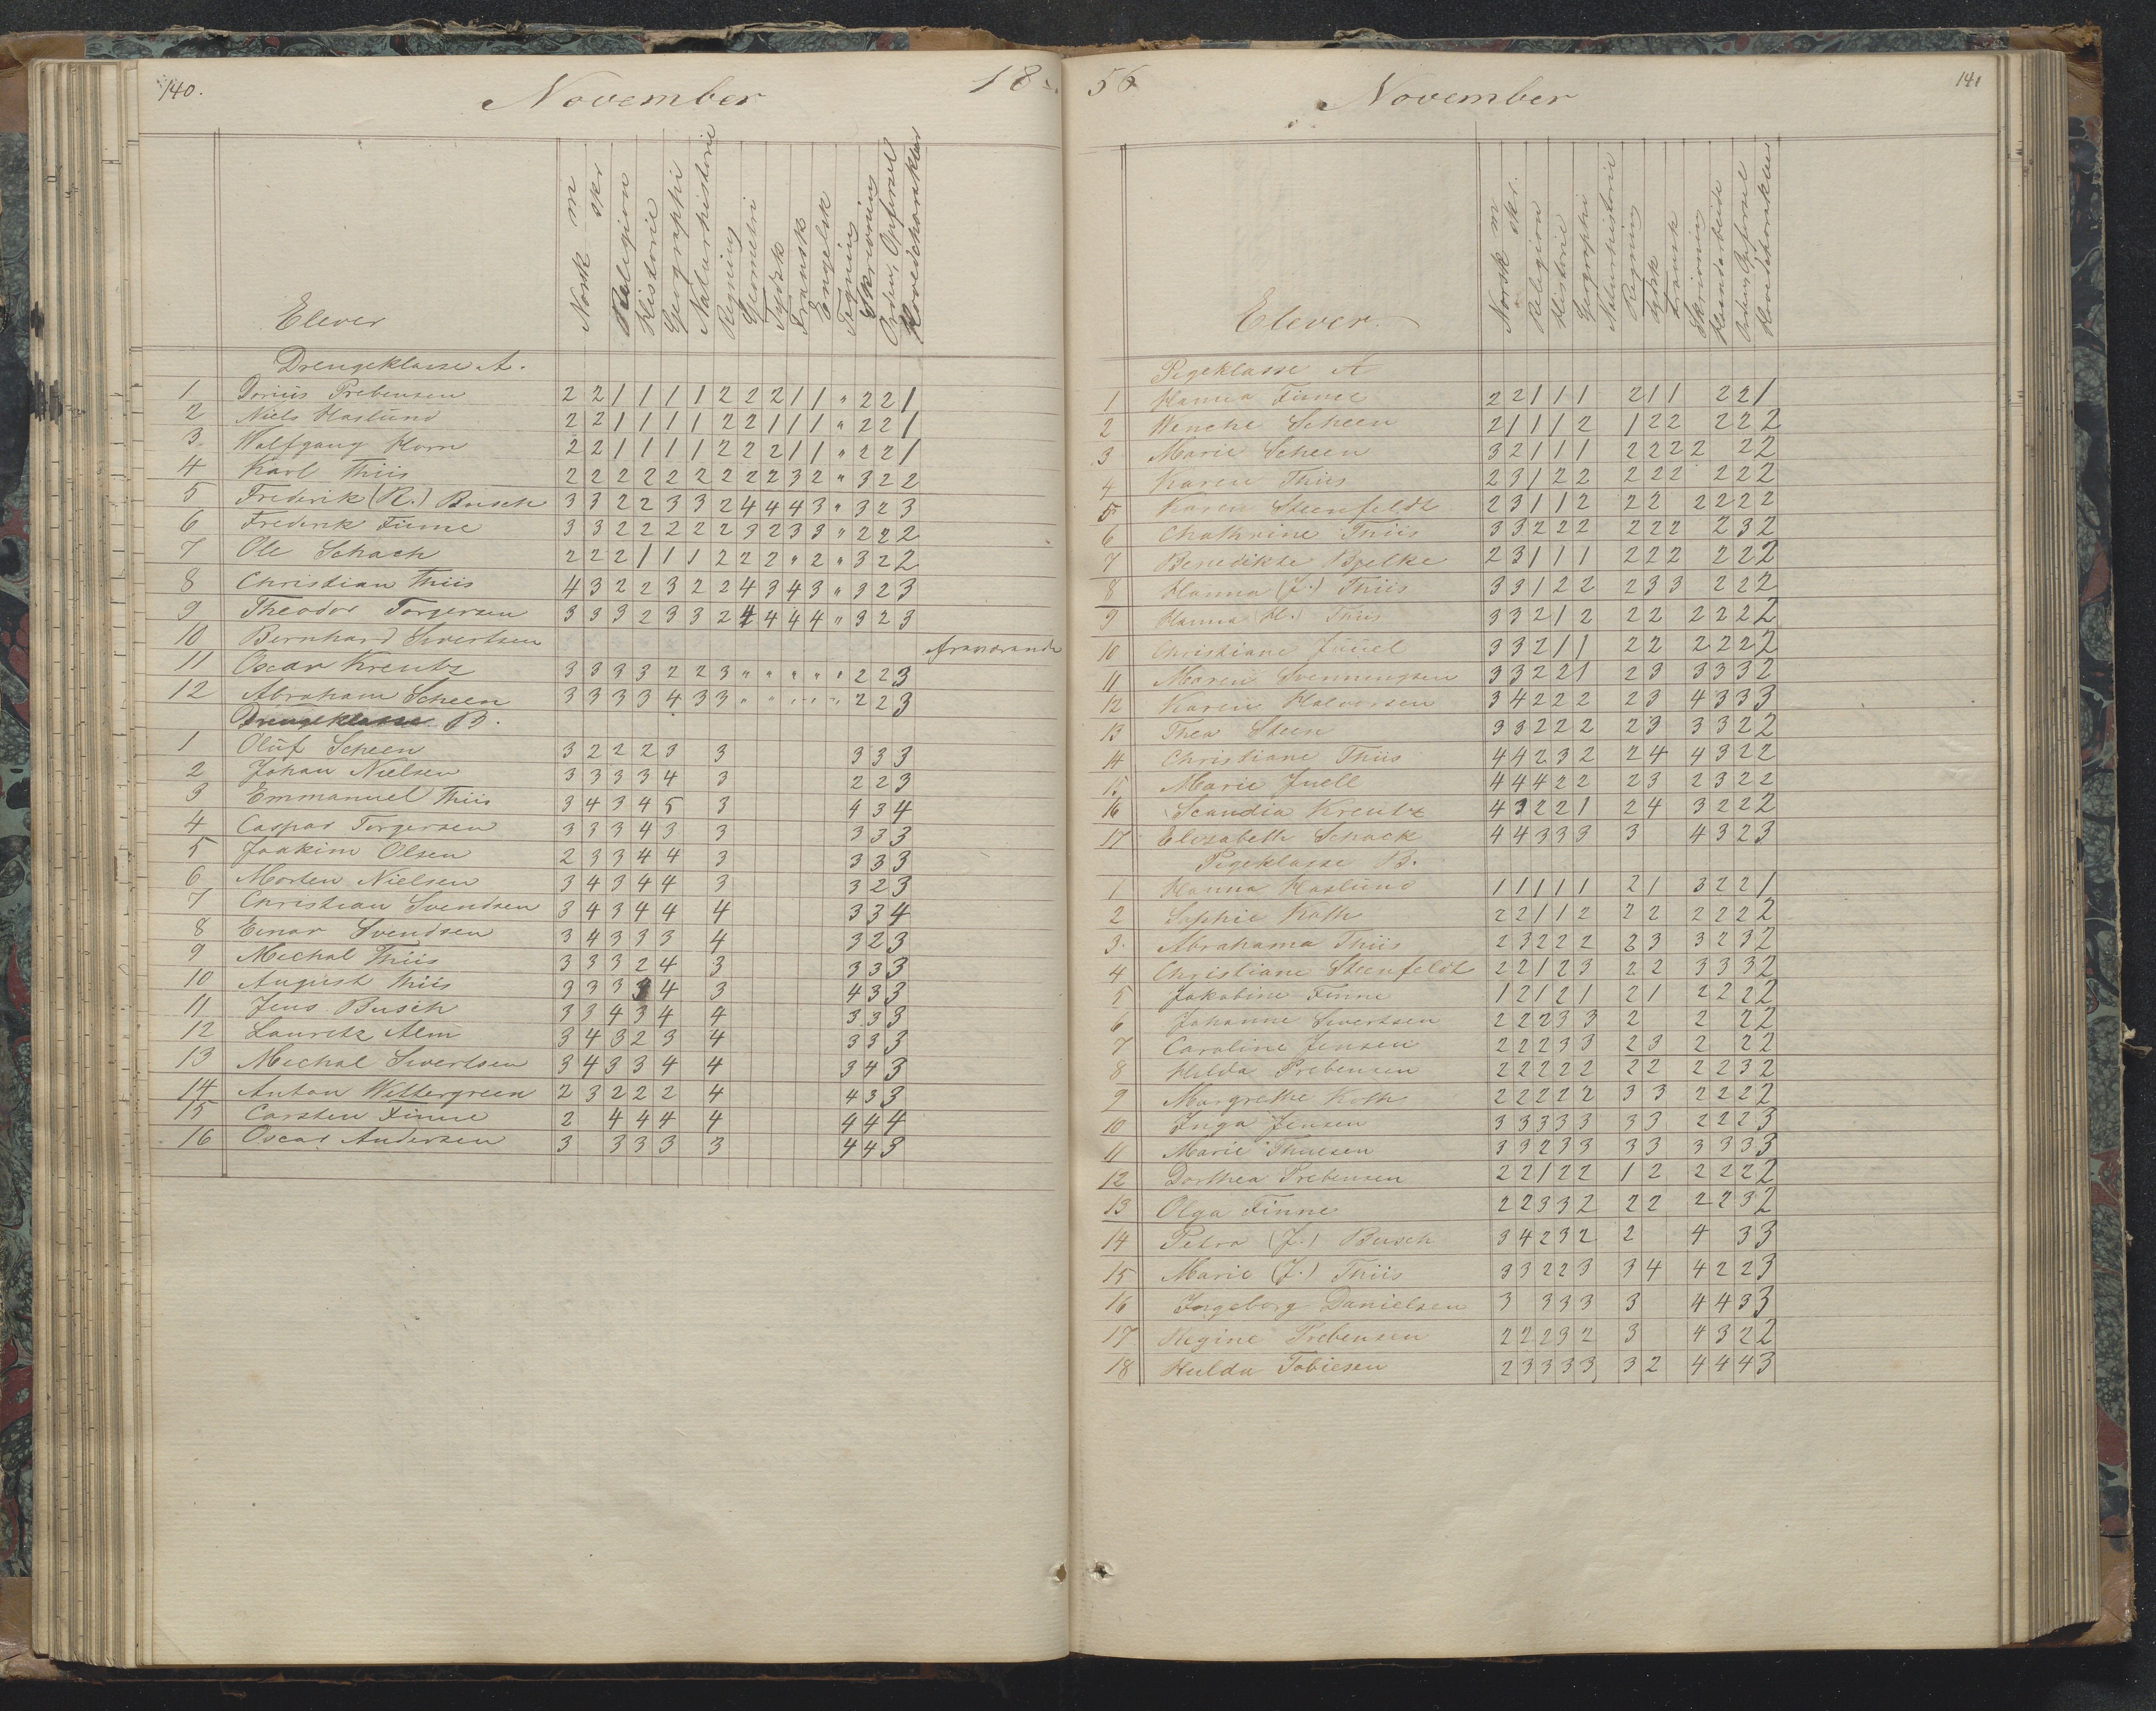 140.
November
18
Elever
Norsk m
skr
Religion
Historie
Geographi
Naturhistorie
Regning
Geometri
Tydsk
Fransk
Engelsk
Tegning
Skrivning
Orden, Opførsel
Hovedcharakter
Drengeklasse A.
1 Dorius Prebensen 2 2 1 1 1 1 2 2 2 1 1 " 2 2 1
2 Niels Haslund 2 2 1 1 1 1 2 2 1 1 1 " 2 2 1
3 Wolfgang Horn 2 2 1 1 1 1 2 2 2 1 1 " 2 2 1
4 Karl Thiis 2 2 2 2 2 2 2 2 2 3 2 " 3 2 2
5 Frederik (R.) Busch 3 3 2 2 3 3 2 4 4 4 3 " 3 2 3
6 Frederik Finne 3 3 2 2 2 2 2 3 2 3 3 " 2 2 2
7 Ole Schach 2 2 2 1 1 1 2 2 2 " 2 " 3 2 2
8 Christian Thiis 4 3 2 2 3 2 2 4 3 4 3 " 3 2 3
9 Theodor Torgersen 3 3 3 2 3 3 2 4 4 4 4 " 3 2 3
10 Bernhard Sivertsen fraværende
11 Oscar Kreutz 3 3 3 3 2 2 3 " " " " " 2 2 3
12 Abraham Scheen 3 3 3 3 4 3 3 " " " " " 2 2 3
Drengeklasse B.
1 Oluf Scheen 3 2 2 2 3 3 3 3 3
2 Johan Nielsen 3 3 3 3 4 3 2 2 3
3 Emmanuel Thiis 3 4 3 4 5 3 4 3 4
4 Caspar Torgersen 3 3 3 4 3 3 3 3 3
5 Joakim Olsen 2 3 3 4 4 3 3 3 3
6 Morten Nielsen 3 4 3 4 4 3 3 2 3
7 Christian Svendsen 3 4 3 4 4 4 3 3 4
8 Einar Svendsen 3 4 3 3 3 4 3 2 3
9 Michal Thiis 3 3 3 2 4 3 3 3 3
10 August Thiis 3 3 3 3 4 3 4 3 3
11 Jens Busch 3 3 4 3 4 4 3 3 3
12 Lauretz Alm 3 4 3 2 3 4 3 3 3
13 Michal Sivertsen 3 4 3 3 4 4 3 4 3
14 Anton Wettergreen 2 3 2 2 2 4 4 3 3
15 Carsten Finne 2 4 4 4 4 4 4 4
16 Oscar Andersen 3 3 3 3 3 4 4 3
56
November
141
Elever.
Norsk m
skr.
Religion
Historie
Geographi
Naturhistorie
Regning
Tydsk
Fransk
Skrivning
Haandarbeide
Orden, Opførsel
Hovedcharakter
Pigeklasse A
1 Hanna Finne 2 2 1 1 1 2 1 1 2 2 1
2 Wenche Scheen 2 1 1 1 2 1 2 2 2 2 2
3 Marie Scheen 3 2 1 1 1 2 2 2 2 2 2
4 Karen Thiis 2 3 1 2 2 2 2 2 2 2 2
5 Karen Steenfeldt 2 3 1 1 2 2 2 2 2 2 2
6 Chathrine Thiis 3 3 2 2 2 2 2 2 2 3 2
7 Benedikte Bjelke 2 3 1 1 1 2 2 2 2 2 2
8 Hanna (J.) Thiis 3 3 1 2 2 2 3 3 2 2 2
9 Hanna (H.) Thiis 3 3 2 1 2 2 2 2 2 2 2
10 Christiane Juuel 3 3 2 1 1 2 2 2 2 2 2
11 Maren Svenningsen 3 3 2 2 1 2 3 3 3 3 2
12 Karen Halvorsen 3 4 2 2 2 2 3 4 3 3 3
13 Thea Steen 3 3 2 2 2 2 3 3 3 2 2
14 Christiane Thiis 4 4 2 3 2 2 4 4 3 2 2
15 Marie Juell 4 4 4 2 2 2 3 2 3 2 2
16 Scandia Kreutz 4 3 2 2 1 2 4 3 2 2 2
17 Elisabeth Schack 4 4 3 3 3 3 4 3 2 3
Pigeklasse B.
1 Hanna Haslund 1 1 1 1 1 2 1 3 2 2 1
2 Sophie Koth 2 2 1 1 2 2 2 2 2 2 2
3. Abrahama Thiis 2 3 2 2 2 2 3 3 2 3 2
4 Christiane Steenfeldt 2 2 1 2 3 2 2 3 3 3 2
5 Jakobine Finne 1 2 1 2 1 2 1 2 2 2 2
6 Johanne Sivertsen 2 2 2 3 3 2 2 2 2
7 Caroline Jensen 2 2 2 3 3 2 3 2 2 2
8 Hilda Prebensen 2 2 2 2 2 2 2 2 2 3 2
9 Margrethe Koth 2 2 2 2 2 3 3 2 2 2 2
10 Inga Jensen 3 3 3 3 3 3 3 2 2 2 3
11 Marie Thuesen 3 3 2 3 3 3 3 3 3 3 3
12 Dorthea Prebensen 2 2 1 2 2 1 2 2 2 2 2
13 Olga Finne 2 2 3 3 2 2 2 2 2 3 2
14 Petra (J.) Busch 3 4 2 3 2 2 4 3 3
15 Marie (J.) Thiis 3 3 2 2 3 3 4 4 2 2 3
16 Ingeborg Danielsen 3 3 3 3 3 4 4 3 3
17 Regine Prebensen 2 2 2 3 2 3 4 3 2 2
18 Hulda Tobiesen 2 3 3 3 3 3 2 4 4 4 3